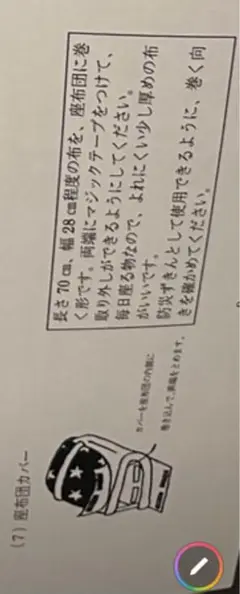 (7) 座布団カバー
長さ70㎝、幅28㎝程度の布を、座布団に巻
く形です。両端にマジックテープをつけて、
取り外しができるようにしてください。
毎日座る物なので、よれにくい少し厚めの布
がいいです。
防災ずきんとして使用できるように、巻く向
きを確かめてください。
カバーを座布団の内側に
巻き込んで、両端をとめます。